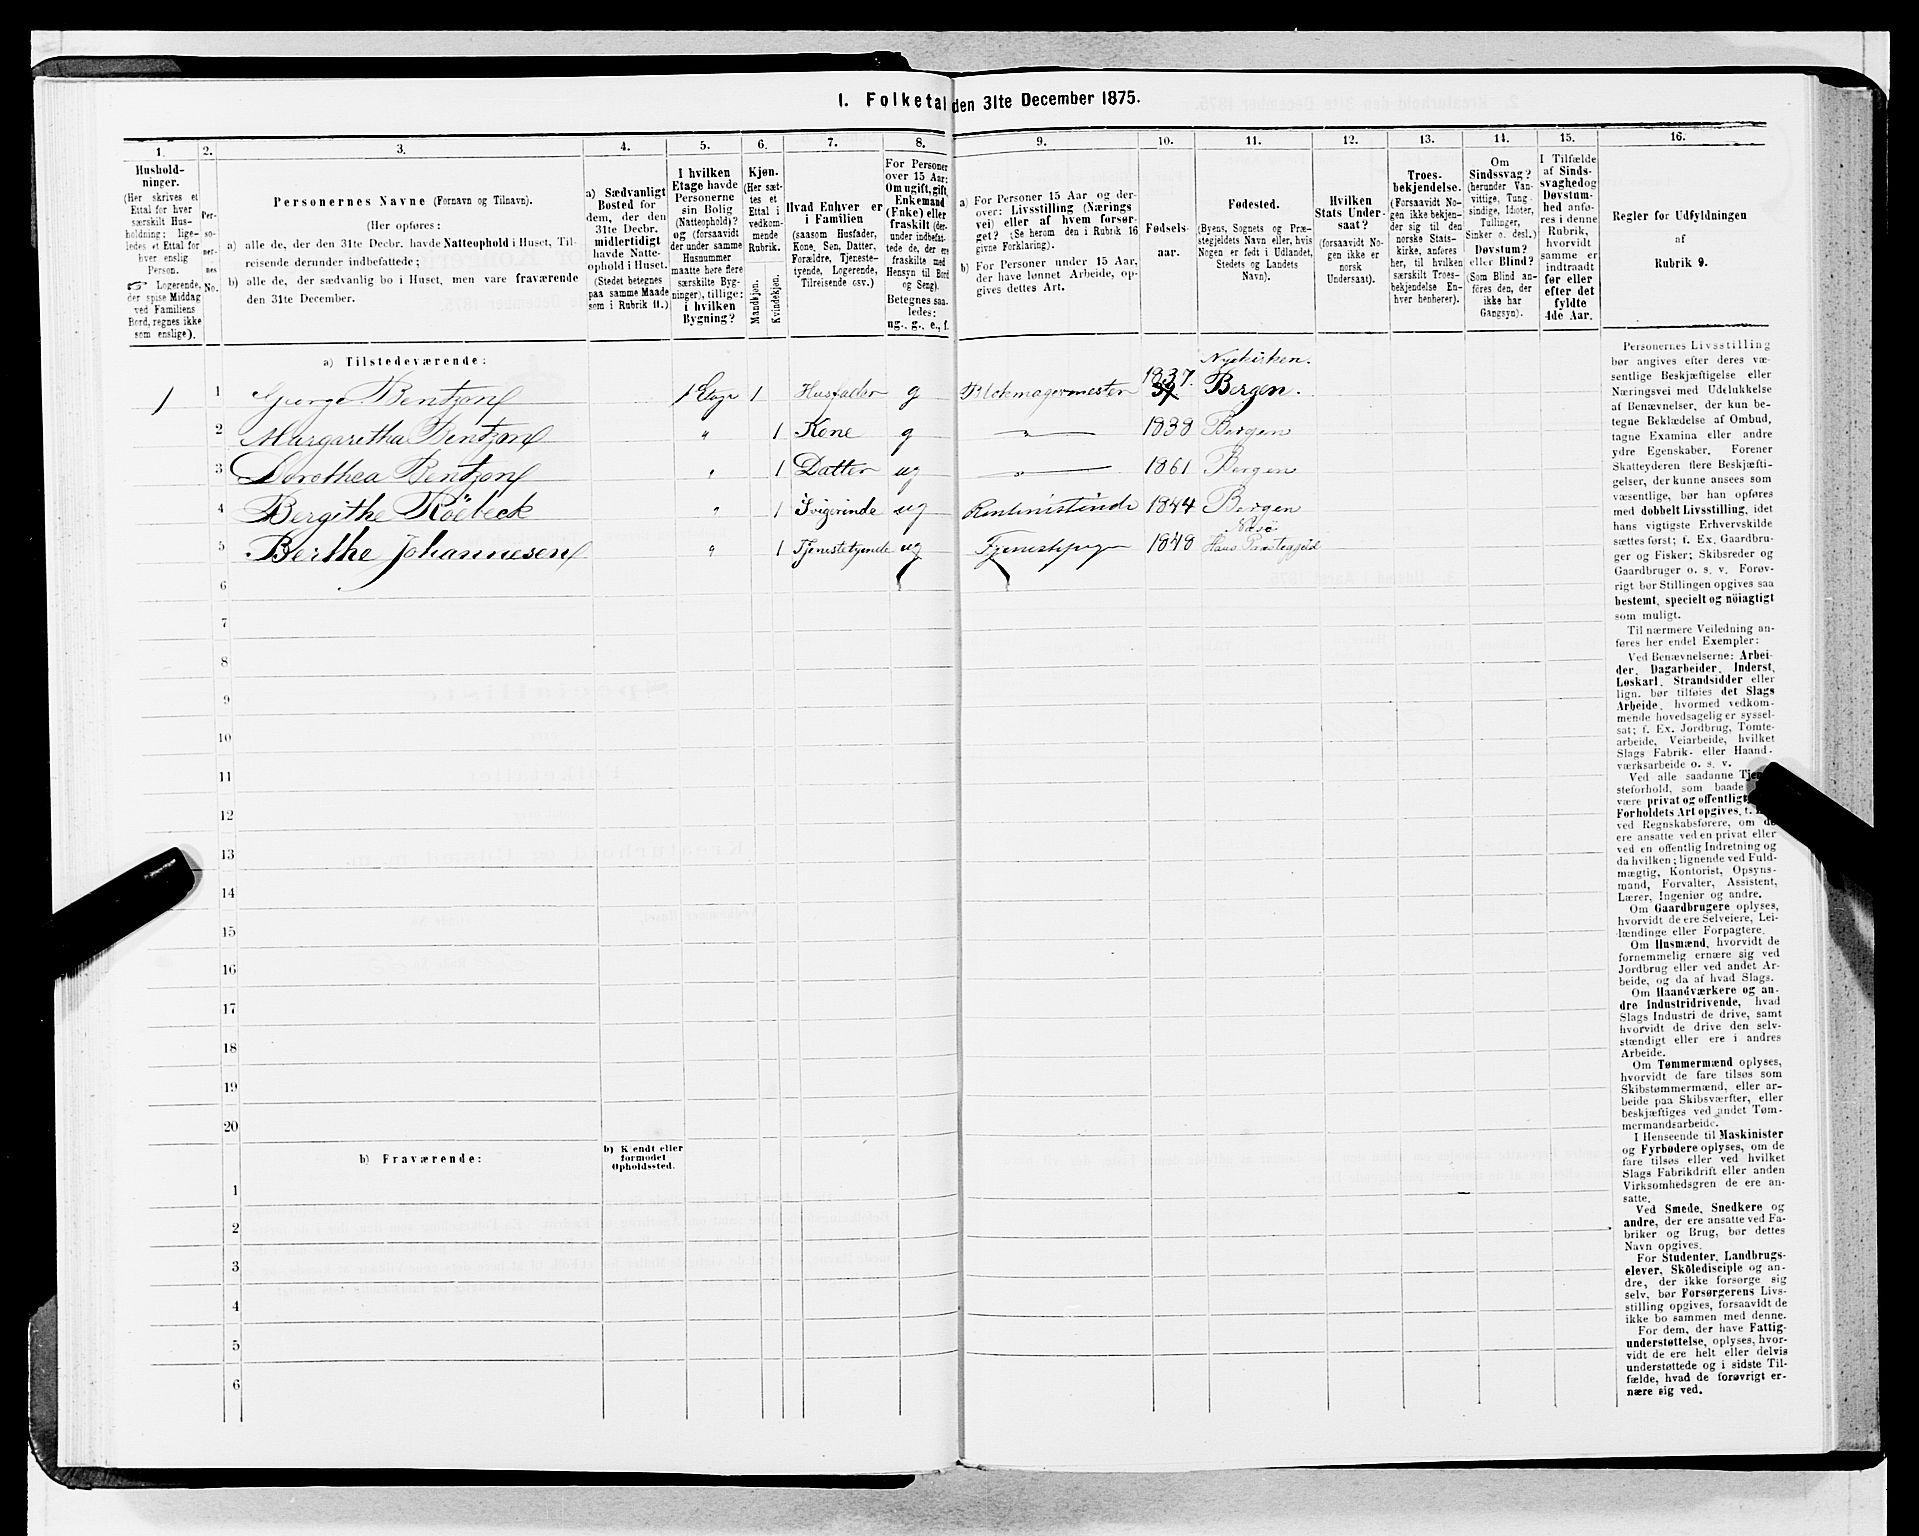 1. Folketal den 31te December 1875.
1.
Hushold-
ninger.
(Her skrives et
Ettal for hver
særskilt Hus-
holdning; lige-
ledes et Ettal for
hver enslig
Person.
☞ Logerende,
der spise Middag
ved Familiens
Bord, regnes ikke
som enslige).
2.
Per-
so-
ner-
nes
No.
3.
Personernes Navne (Fornavn og Tilnavn).
(Her opføres:
a) alle de, der den 31te Decbr. havde Natteophold i Huset, Til-
reisende derunder indbefattede;
b) alle de, der sædvanlig bo i Huset, men vare fraværende
den 31te December.
4.
a) Sædvanligt
Bosted for
dem, der den
31te Decbr.
midlertidigt
havde Natte-
ophold i Huset.
(Stedet betegnes
paa samme Maade
som i Rubrik 11.)
5.
I hvilken
Etage havde
Personerne
sin Bolig
(Natteophold)?
og (forsaavidt
der under samme
Husnummer
maatte høre flere
særskilte Byg-
ninger), tillige:
i hvilken
Bygning?
6.
Kjøn.
(Her sæt-
tes et
Ettal i
vedkom-
mende
Rubrik.
Mandkjøn.
Kvindekjøn.
7.
Hvad Enhver er
i Familien
(saasom Husfader,
Kone, Søn, Datter,
Forældre, Tjeneste-
tyende, Logerende,
Tilreisende osv.)
8.
For Personer
over 15 Aar:
Om ugift, gift,
Enkemand
(Enke) eller
fraskilt (der-
under indbefat-
tede de, der ere
fraskilte med
Hensyn til Bord
og Seng).
Betegnes saa-
ledes:
ug., g., e., f.
9.
a) For Personer 15 Aar og der-
over: Livsstilling (Nærings
vei) eller af hvem forsør-
get? (Se herom den i Rubrik 16
givne Forklaring).
b) For Personer under 15 Aar,
der have lønnet Arbeide, op-
gives dettes Art.
10.
Fødsels-
aar.
11.
Fødested.
(Byens, Sognets og Præ-
stegjeldets Navn eller, hvis
Nogen er født i Udlandet,
Stedets og Landets
Navn).
12.
Hvilken
Stats Under-
saat?
(forsaavidt No-
gen ikke er
norsk
Undersaat).
13.
Troes-
bekjendelse.
(Forsaavidt No-
gen ikke bekjen-
der sig til den
norske Stats-
kirke, anføres
her, til hvilken
særskilt Troes-
bekjendelse En-
hver henhører).
14.
Om
Sindssvag?
(herunder Van-
vittige, Tung-
sindige, Idioter,
Tullinger,
Sinker o. desl.)
Døvstum?
eller Blind?
(Som Blind an-
føres den, der
ikke har
Gangsyn).
15.
I Tilfælde
af Sinds-
svaghed og
Døvstum-
hed anfø-
res i denne
Rubrik,
hvorvidt
samme er
indtraadt
før eller
efter det
fyldte
4de Aar.
16.
Regler for Udfyldningen
af
Rubrik 9.
a) Tilstedeværende:
Nyekirken.
1 1 George Bentzon 1 Etage 1 Husfader g Blokmagermester 1837. Bergen.
2 Margaretha Bentzon " 1 Kone g " 1838 Bergen
3 Dorothea Bentzon " 1 Datter ug " 1861 Bergen
4 Bergithe Röebeck " 1 Svigerinde ug Rentenistinde 1844 Bergen
5 Berthe Johannesen " 1 Tjenestetyende ug Tjenestepige 1848 Haus Præstegjeld
6
7
8
9
10
11
12
13
14
15
16
17
18
19
20
b) Fraværende:
b) Kjendt eller
formodet
Opholdssted.
1
2
3
4
5
6
Personernes Livsstilling
bør angives efter deres væ-
sentlige Beskjæftigelse eller
Næringsvei med Udelukkelse
af Benævnelser, der kun be-
tegne Beklædelse af Ombud,
tagne Examina eller andre
ydre Egenskaber. Forener
Skatteyderen flere Beskjæfti-
gelser, der kunne ansees som
væsentlige, bør han opføres
med dobbelt Livsstilling, idet
hans vigtigste Erhvervskilde
sættes først; f. Ex. Gaardbru-
ger og Fisker; Skibsreder og
Gaardbruger o. s. v. Forøv-
rigt bør Stillingen opgives saa
bestemt, specielt og nöiagtigt
som muligt.
Til nærmere Veiledning an-
føres her endel Exempler:
Ved Benævnelserne: Arbei-
der, Dagarbeider, Inderst,
Løskarl, Strandsidder eller
lign. bør tilføies det Slags
Arbeide, hvormed vedkom-
mende hovedsagelig er syssel-
sat; f. Ex. Jordbrug, Tomte-
arbeide, Veiarbeide, hvilket
Slags Fabrik- eller Haand-
værksarbeide o. s. v.
Ved alle saadanne Tje
steforhold, som baade
være privat og offentligt,
Forholdets Art opgives, f.
ved Regnskabsførere, om de
ere ansatte ved en privat eller
ved en offentlig Indretning og
da hvilken; lignende ved Fuld-
mægtig, Kontorist, Opsyns-
mand, Forvalter, Assistent,
Lærer, Ingeniør og andre.
Om Gaardbrugere oplyses,
hvorvidt de ere Selveiere, Lei-
lændinge eller Forpagtere.
Om Husmænd, hvorvidt de
fornemmelig ernære sig ved
Jordbrug eller ved andet Ar-
beide, og da af hvad Slags.
Om Haandværkere og an-
dre Industridrivende, hvad
Slags Industri de drive, samt
hvorvidt de drive den selv-
stændigt eller ere i andres
Arbeide.
Om Tømmermænd oplyses,
hvorvidt de fare tilsøs som
Skibstømmermænd, eller ar-
beide paa Skibsværfter, eller
beskjæftiges ved andet Tøm-
mermandsarbeide.
I Henseende til Maskinister
og Fyrbødere oplyses, om de
fare tilsøs eller ved hvilket
Slags Fabrikdrift eller anden
Virksomhedsgren de ere an-
satte.
Ved Smede, Snedkere og
andre, der ere ansatte ved Fa-
briker og Brug, bør dettes
Navn opgives.
For Studenter, Landbrugs-
elever, Skölediscíple og an-
dre, der ikke forsørge sig
selv, bør Forsørgerens Livs-
stilling opgives, forsaavidt de
ikke bo sammen med denne.
For dem, der have Fattig-
understøttelse, oplyses, hvor-
vidt de ere helt eller delvis
understøttede og i sidste Til-
fælde, hvad de forøvrigt er-
nære sig ved.